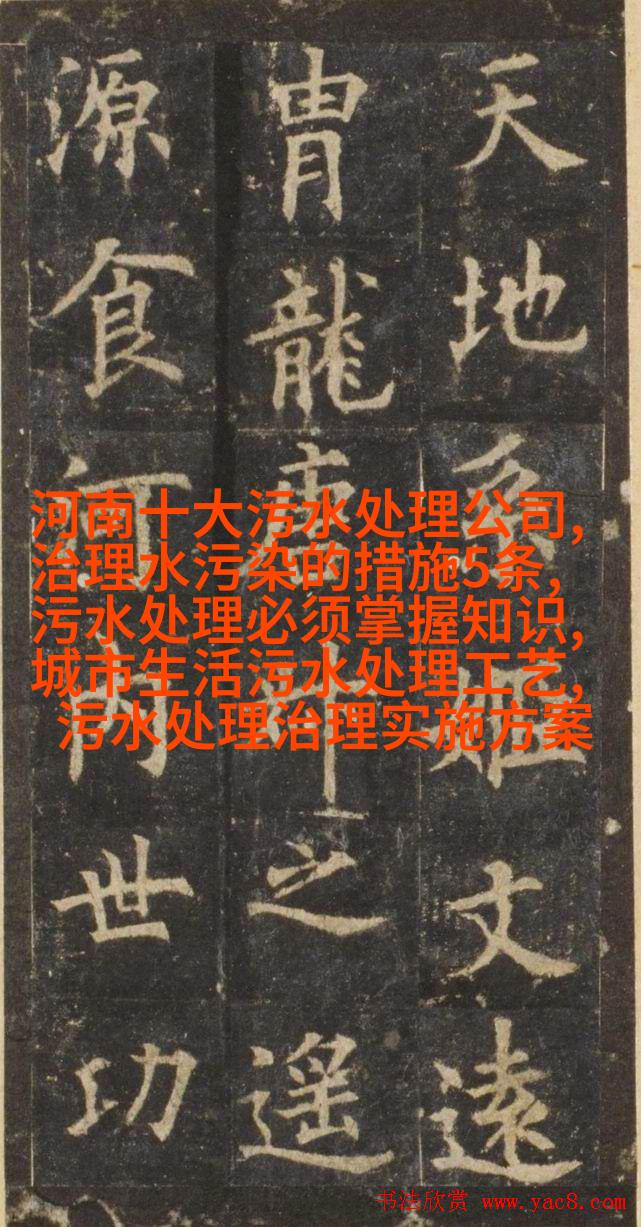 天地姬文遠
胄龍之遥
源食河内世功
河南十大污水处理公司,
治理水污染的措施5条,
污水处理必须掌握知识,
城市生活污水处理工艺,
污水处理治理实施方案
书法欣赏 www.yac8.com